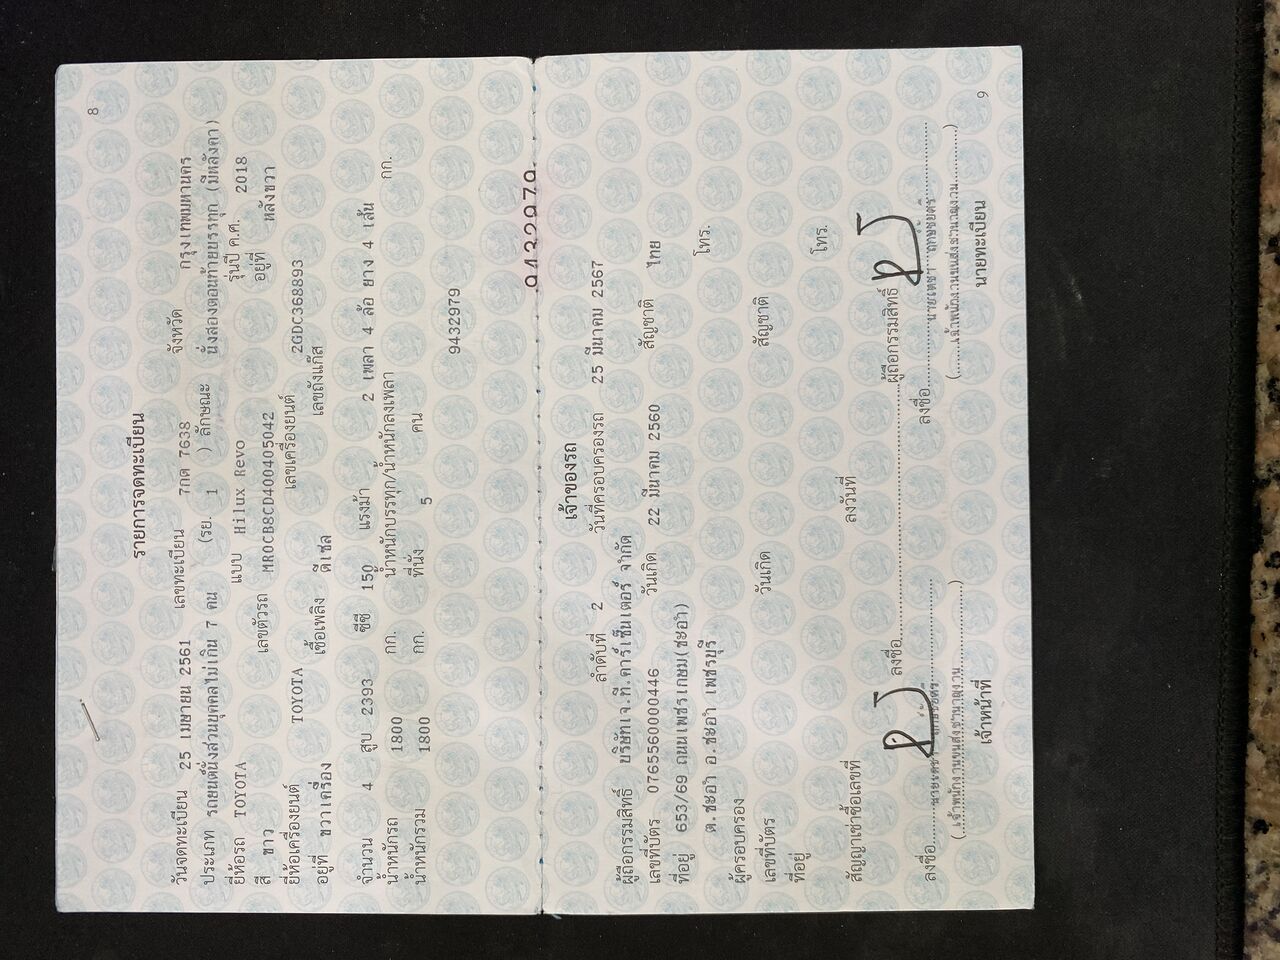 8
รายการจดทะเบียน
วันจดทะเบียน 25 เมษายน 2561 เลขทะเบียน 7กด 7638 จังหวัด กรุงเทพมหานคร
ประเภท รถยนต์นั่งส่วนบุคคลไม่เกิน 7 คน (รย. 1 ) ลักษณะ นั่งสองตอนท้ายบรรทุก (มีหลังคา)
ยี่ห้อรถ TOYOTA แบบ Hilux Revo รุ่นปี ค.ศ. 2018
สี ขาว เลขตัวรถ MR0CB8CD400405042 อยู่ที่ หลังขวา
ยี่ห้อเครื่องยนต์ TOYOTA เลขเครื่องยนต์ 2GDC368893
อยู่ที่ ขวาเครื่อง เชื้อเพลิง ดีเซล เลขถังแก๊ส
จำนวน 4 สูบ 2393 ซีซี 150 แรงม้า 2 เพลา 4 ล้อ ยาง 4 เส้น
น้ำหนักรถ 1800 กก. น้ำหนักบรรทุก/น้ำหนักลงเพลา กก.
น้ำหนักรวม 1800 กก. ที่นั่ง 5 คน
9432979
9432979
เจ้าของรถ
ลำดับที่ 2 วันที่ครอบครองรถ 25 มีนาคม 2567
ผู้ถือกรรมสิทธิ์ บริษัทเจ.ที.คาร์เซ็นเตอร์ จำกัด
เลขที่บัตร 0765560000446 วันเกิด 22 มีนาคม 2560 สัญชาติ ไทย
ที่อยู่ 653/69 ถนนเพชรเกษม(ชะอำ)
ต.ชะอำ อ.ชะอำ เพชรบุรี โทร.
ผู้ครอบครอง
เลขที่บัตร วันเกิด สัญชาติ
ที่อยู่ โทร.
สัญญาเช่าซื้อเลขที่ ลงวันที่
ลงชื่อ ผู้ถือกรรมสิทธิ์
ลงชื่อ ลงชื่อ
(เจ้าพนักงานขนส่งชำนาญงาน) (เจ้าพนักงานขนส่งชำนาญงาน)
เจ้าหน้าที่ นายทะเบียน
9